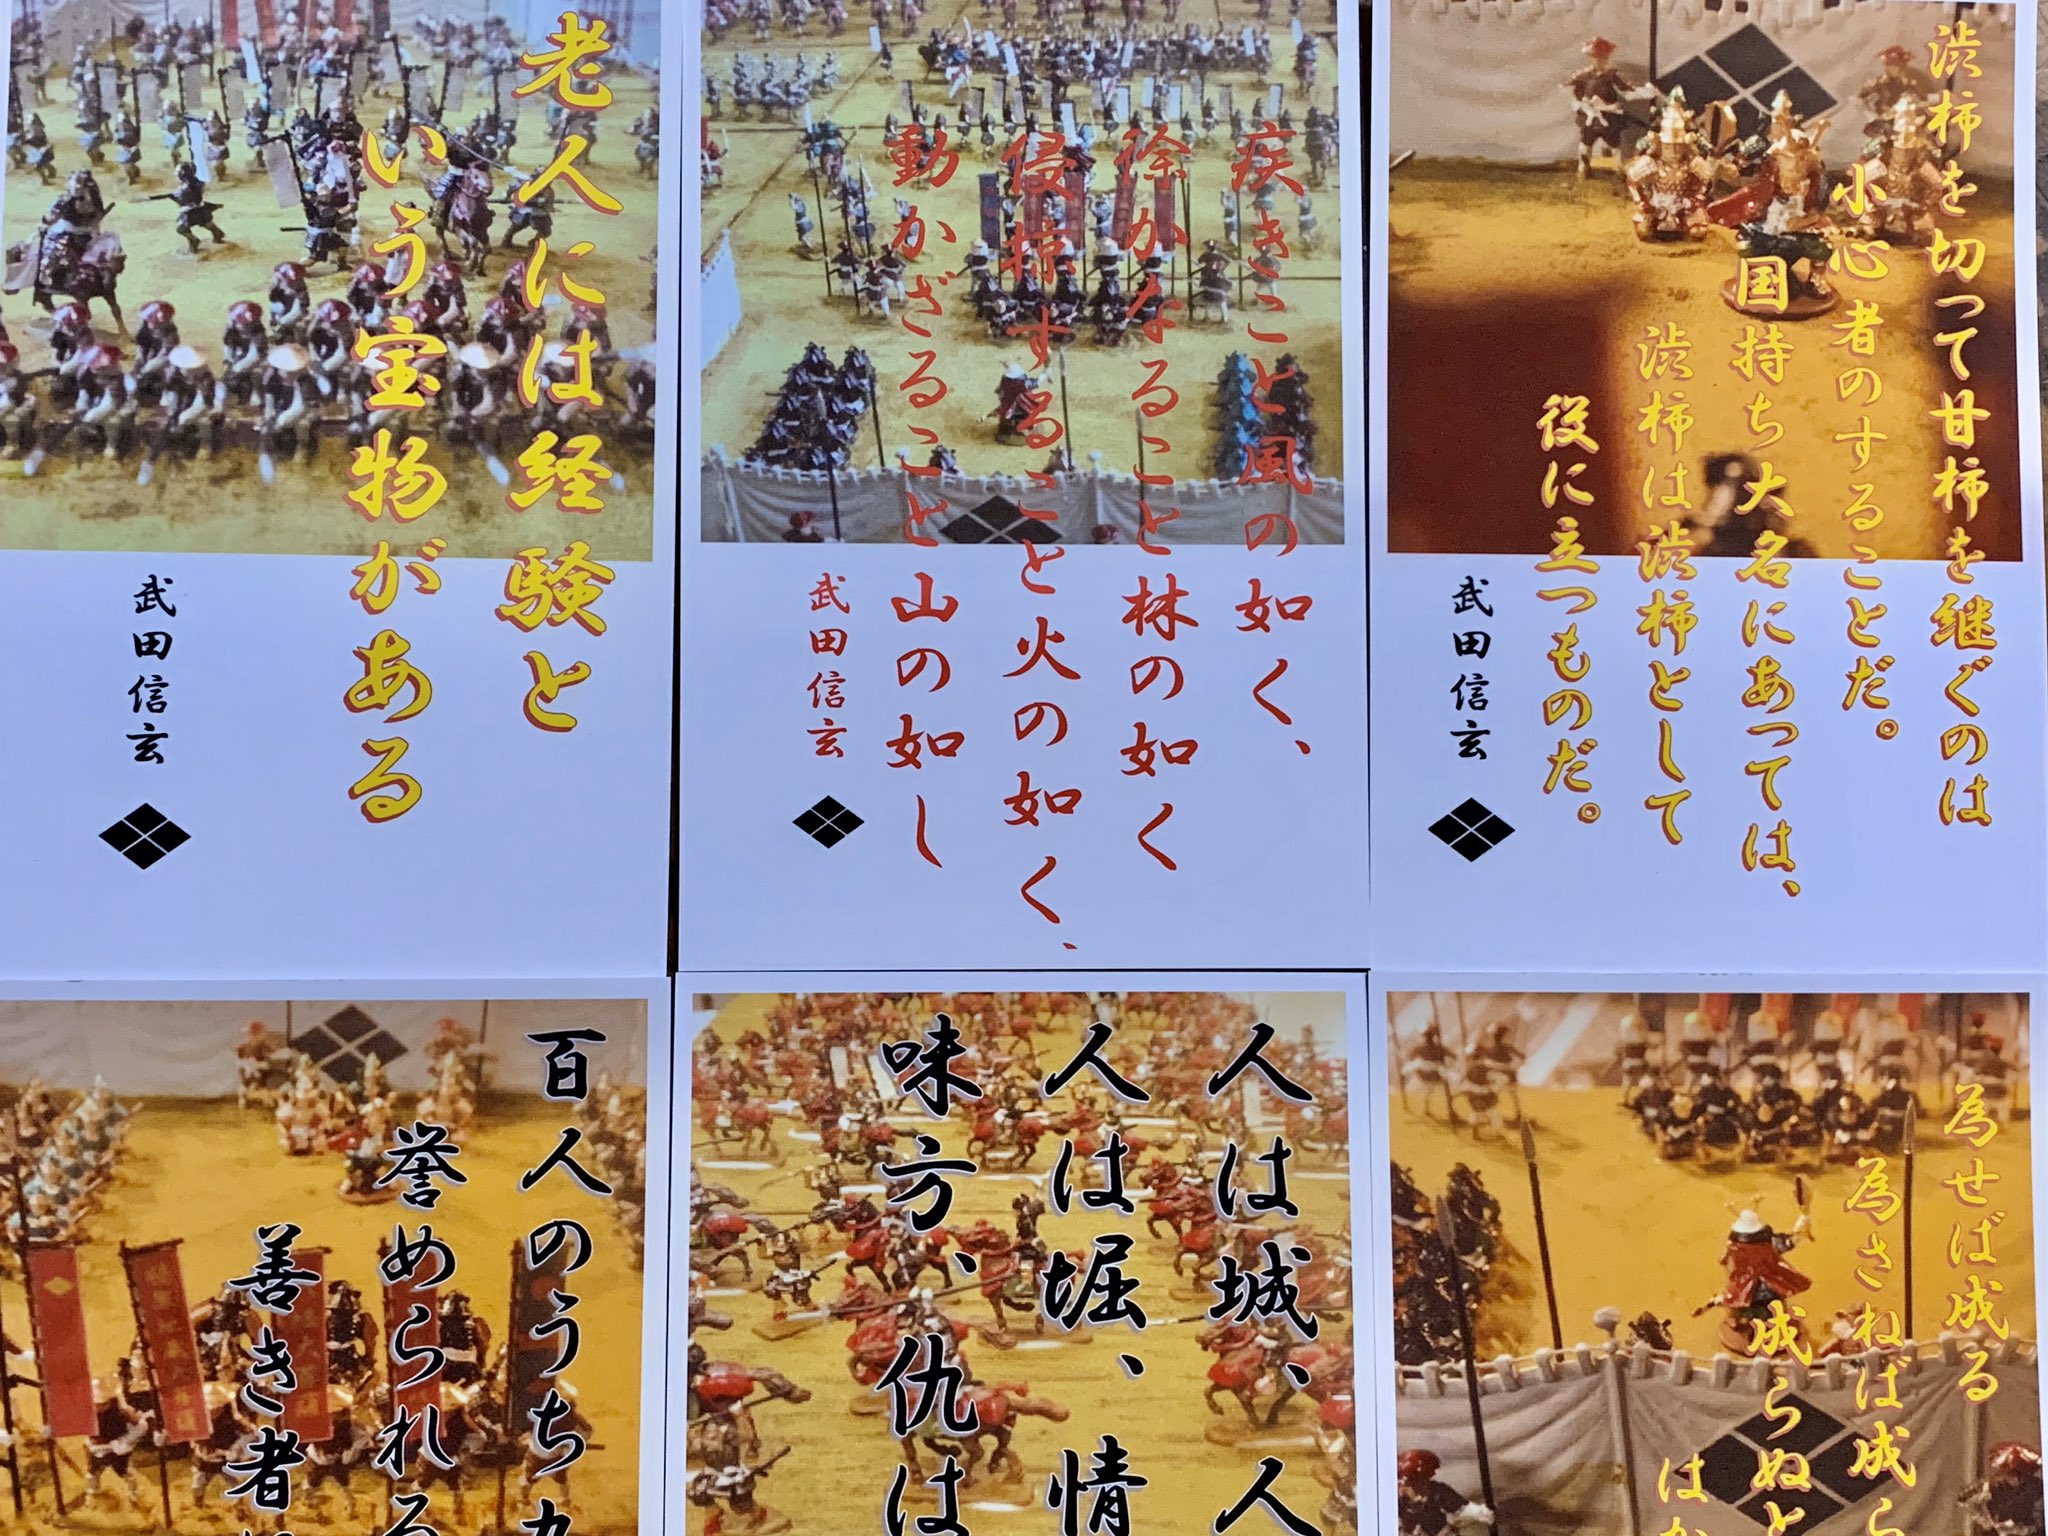 老人には経験と
いう宝物がある
武田信玄
疾きこと風の如く、
徐かなること林の如く
侵掠すること火の如く、
動かざること山の如し
武田信玄
渋柿を切って甘柿を継ぐのは
小心者のすることだ。
国持ち大名にあっては、
渋柿は渋柿として
役に立つものだ。
武田信玄
百人のうち九
誉められる
善き者
人は城、人
人は堀、情
味方、仇は
為せば成る
為さねば成ら
成らぬと
はか